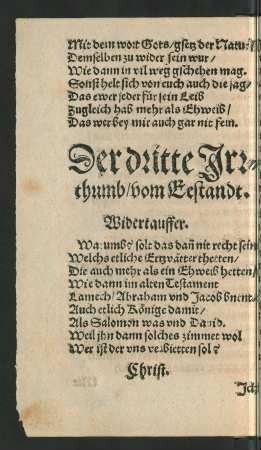 Mit dem wort Gots/gsetz der Natur/
Demselben zu wider sein wur/
Wie dann in vil weg gschehen mag.
Sonst helt sich von euch auch die sag/
Das ewer jeder für sein Leib
Zugleich hab mehr als Ehweib/
Das wer bey mir auch gar nit fein.
Der dritte Irr⸗
thumb/vom Eestandt.
Widertauffer.
Warumb? solt das dañ nit recht sein
Welchs etliche Ertzvätter thetten/
Die auch mehr als ein Ehweib hetten/
Wie dann im alten Testament
Lamech/Abraham vnd Jacob bnent/
Auch etlich Könige damit/
Als Salomon was vnd David.
Weil jhn dann solches zimmet wol
Wer ist der vns verbietten sol?
Christ.
Ich